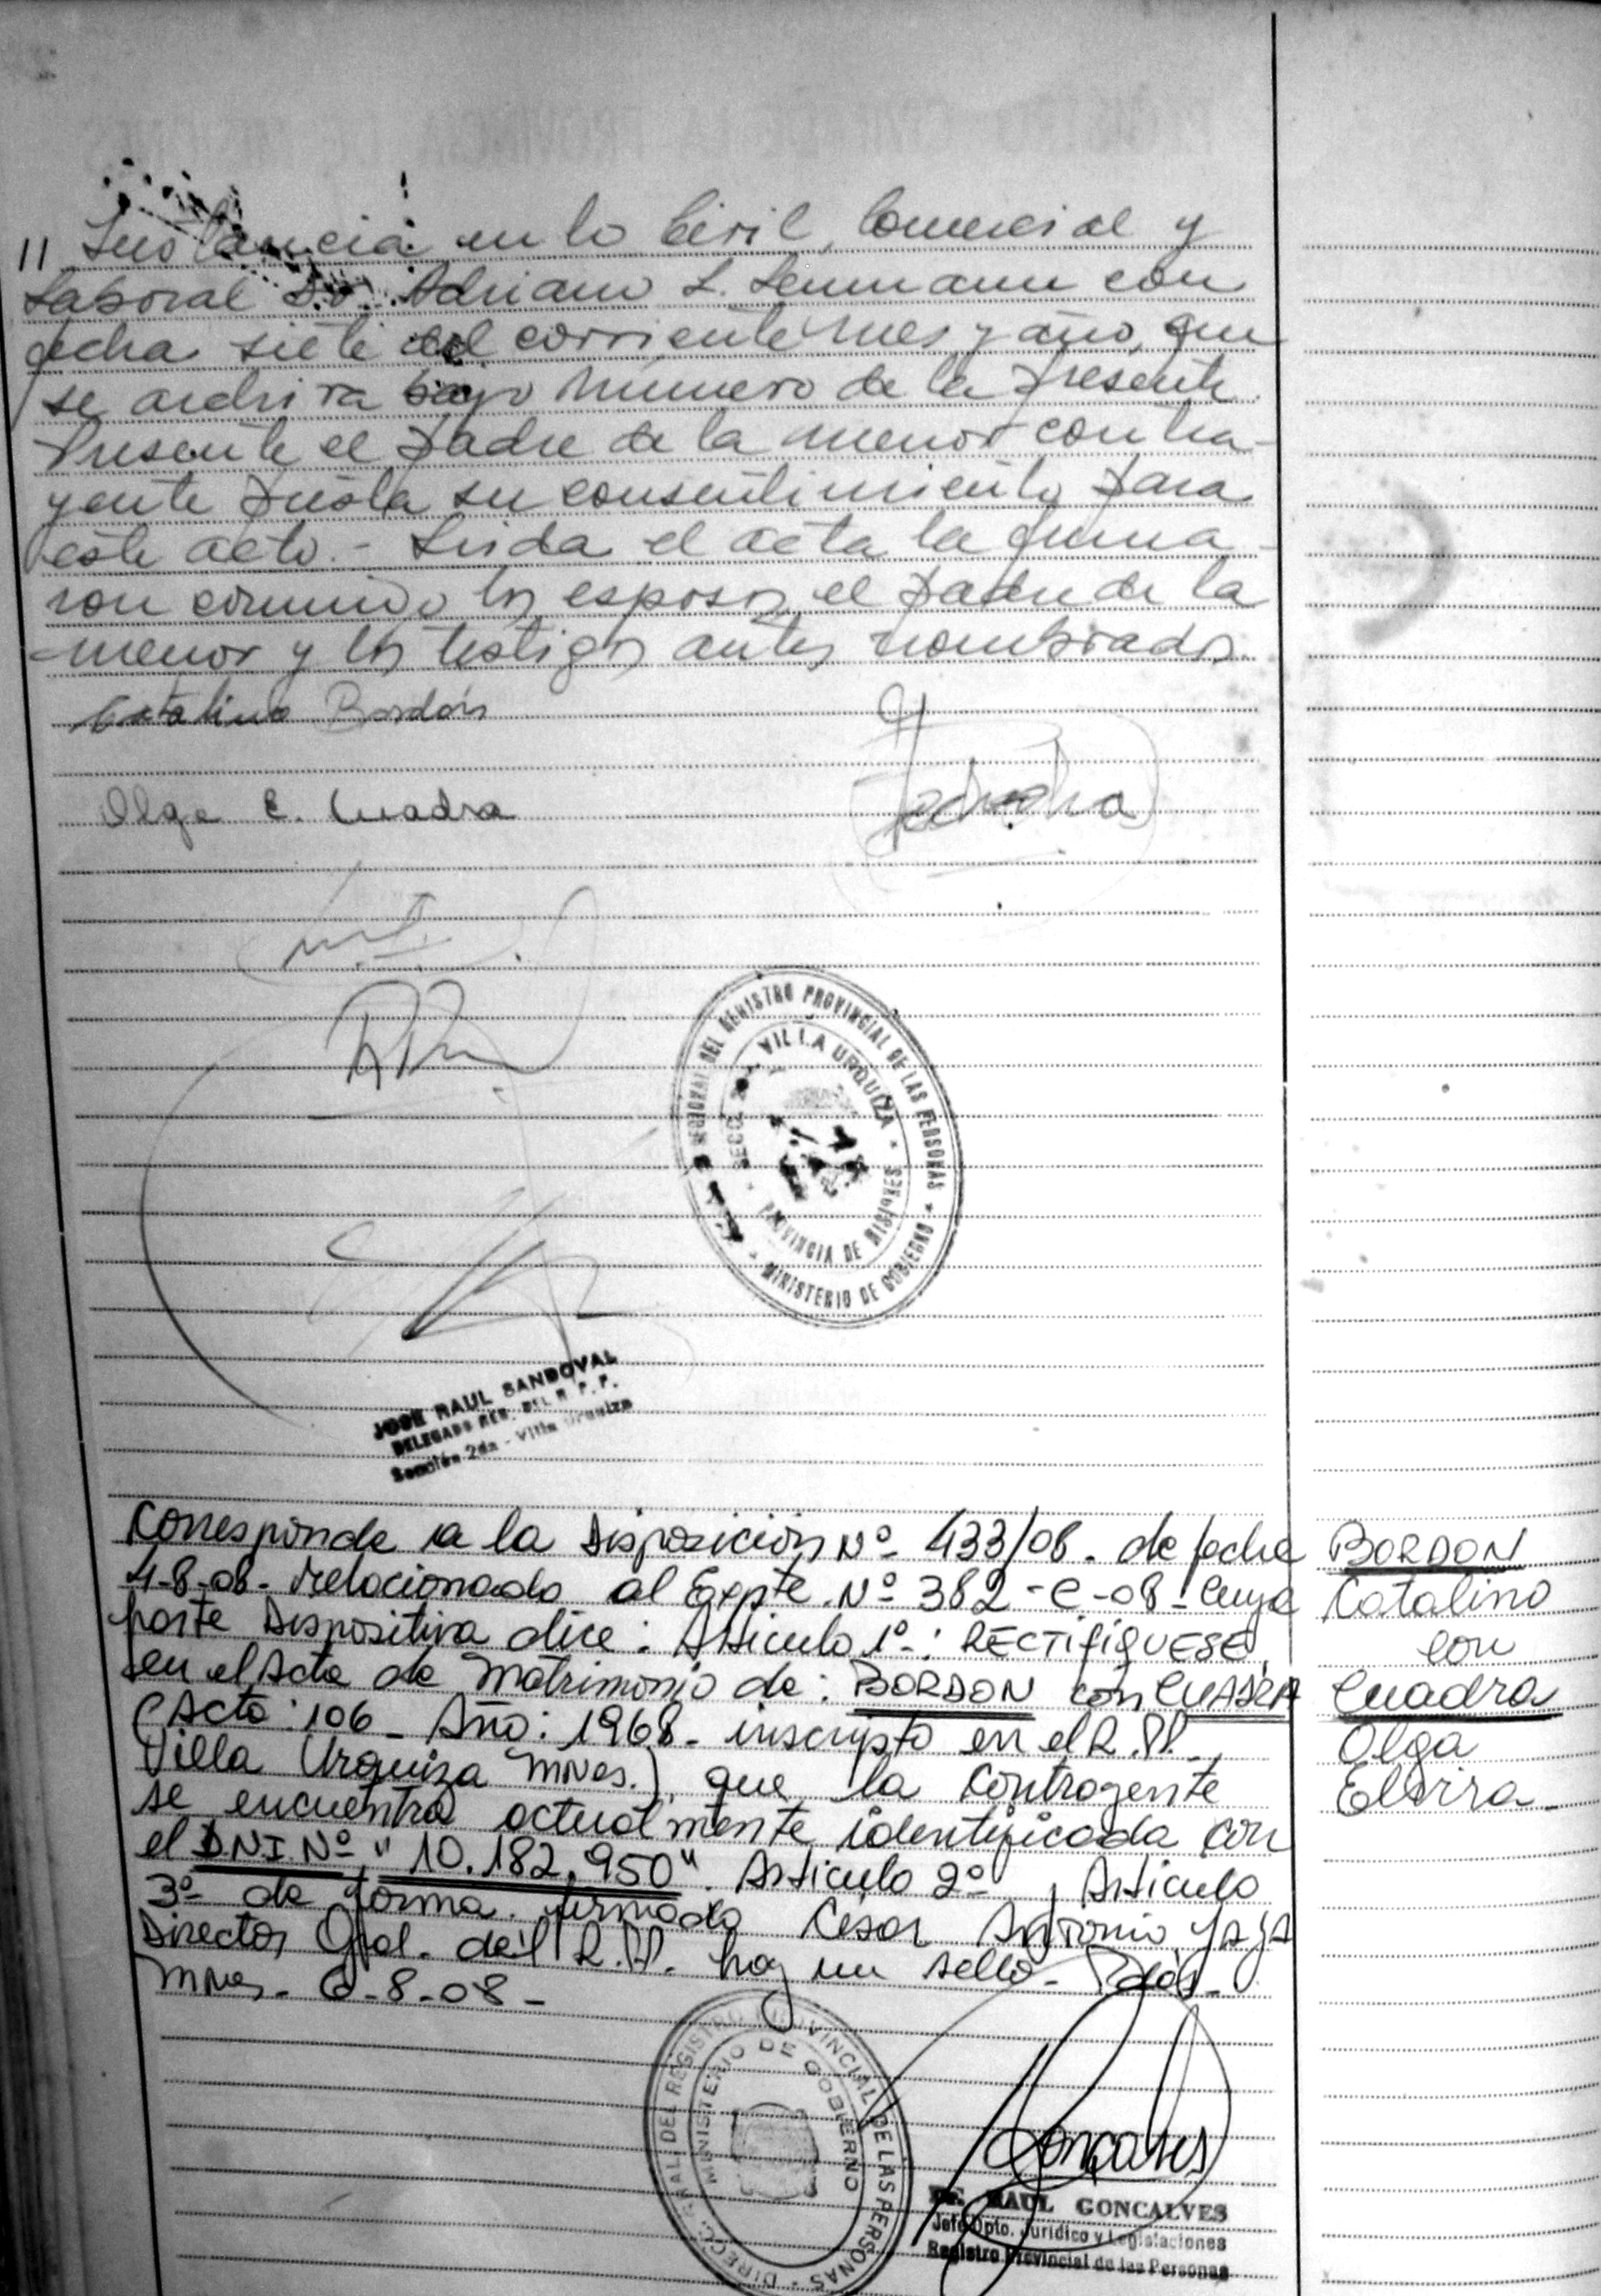 11 Instancia en lo Civil, Comercial y
Laboral Dr. Adriano L. con
fecha siete del corriente mes y año, que
se archiva bajo número de la presente.
Presente el padre de la menor contra-
yente presta su consentimiento para
este acto.- Leida el acta la firma-
ron conmigo los esposos, el padre de la
menor y los testigos antes nombrados.
Catalino Bordón
Olga E. Cuadra
REGISTRO PROVINCIAL DE LAS PERSONAS
VILLA URQUIZA
PROVINCIA DE MISIONES
MINISTERIO DE GOBIERNO
JOSE RAUL SANDOVAL
DELEGADO REG. DEL R. P. P.
Sección 2da - Villa Urquiza
Corresponde a la Disposición Nº 433/08. de fecha
4-8-08- relacionado al Expte. Nº 382-C-08- Cuya
parte Dispositiva dice: Articulo 1º: RECTIFIQUESE,
en el Acta de Matrimonio de: BORDON con CUADRA
(Acta: 106 - Año: 1968- inscripto en el R.PP.-
Villa Urquiza Mnes.), que la Contrayente
se encuentra actualmente identificada con
el D.N.I. Nº "10.182.950". Articulo 2º, Articulo
3º de forma. firmado Cesar Antonio
Director Gral. del R.PP. hay un sello- Pdas-
Mnes- 6-8-08-
BORDON
Catalino
con
Cuadra
Olga
Elvira-
DIRECC. GRAL. DEL REGISTRO PROVINCIAL DE LAS PERSONAS
MINISTERIO DE GOBIERNO
Goncalves
Dr. RAUL GONCALVES
Jefe Dpto. Jurídico y Legislaciones
Registro Provincial de las Personas